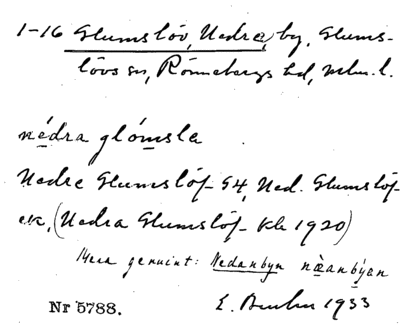 1-16 Glumslöv, Nedra, by, Glums-
lövs sn, Rönnebergs hd, Mlm. l.
nédra glómsla
Nedre Glumslöf G4, Ned. Glumslöf
ek, (Nedra Glumslöf Kb 1920)
Mera genuint: Nedanbyn nàanbýan
Nr 5788.
E. 1933